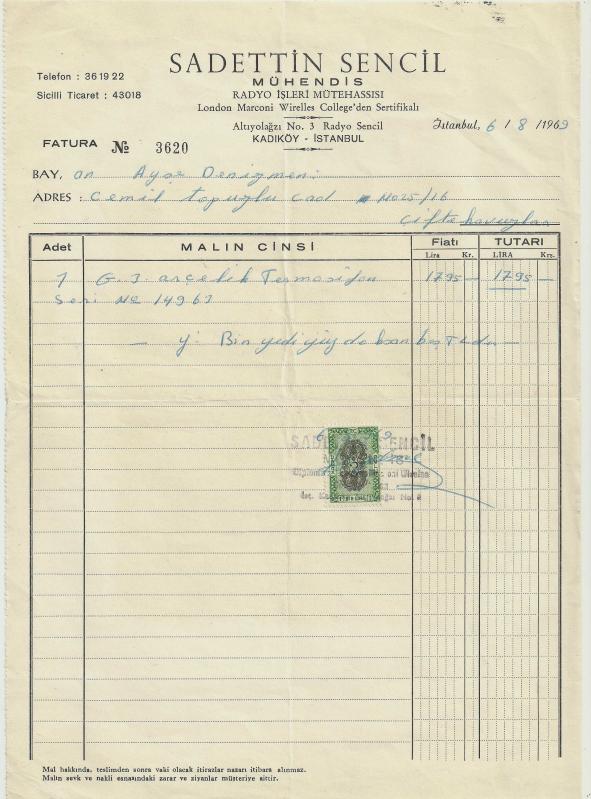 SADETTİN SENCİL
MÜHENDİS
RADYO İŞLERİ MÜTEHASSISI
London Marconi Wirelles College'den Sertifikalı
Altıyolağzı No. 3 Radyo Sencil
KADIKÖY - İSTANBUL
Telefon : 36 19 22
Sicilli Ticaret : 43018
İstanbul, 6 / 8 / 1969
FATURA № 3620
BAY, an Ayşe Denizmen
ADRES : Cemil Topuzlu Cad No 25/16
Çifte havuzlar
Adet MALIN CİNSİ Fiatı TUTARI
Lira Kr. LİRA Krş.
1 G. J. arçelik Termosifon 1795 — 1795 —
Seri No 14963
— y: Bin yedi yüz doksan beş TL dır —
SADETTİN SENCİL
Mal hakkında, teslimden sonra vaki olacak itirazlar nazarı itibara alınmaz.
Malın sevk ve nakli esnasındaki zarar ve ziyanlar müşteriye aittir.